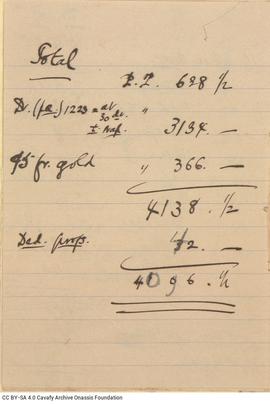 Total
P.T. 628 1/2
Dr. (pa.) 1223 = at " 3134. —
30 dr.
fr. gold " 366. —
4138. 1/2
Ded. 42. —
4096. 1/2
CC BY-SA 4.0 Cavafy Archive Onassis Foundation